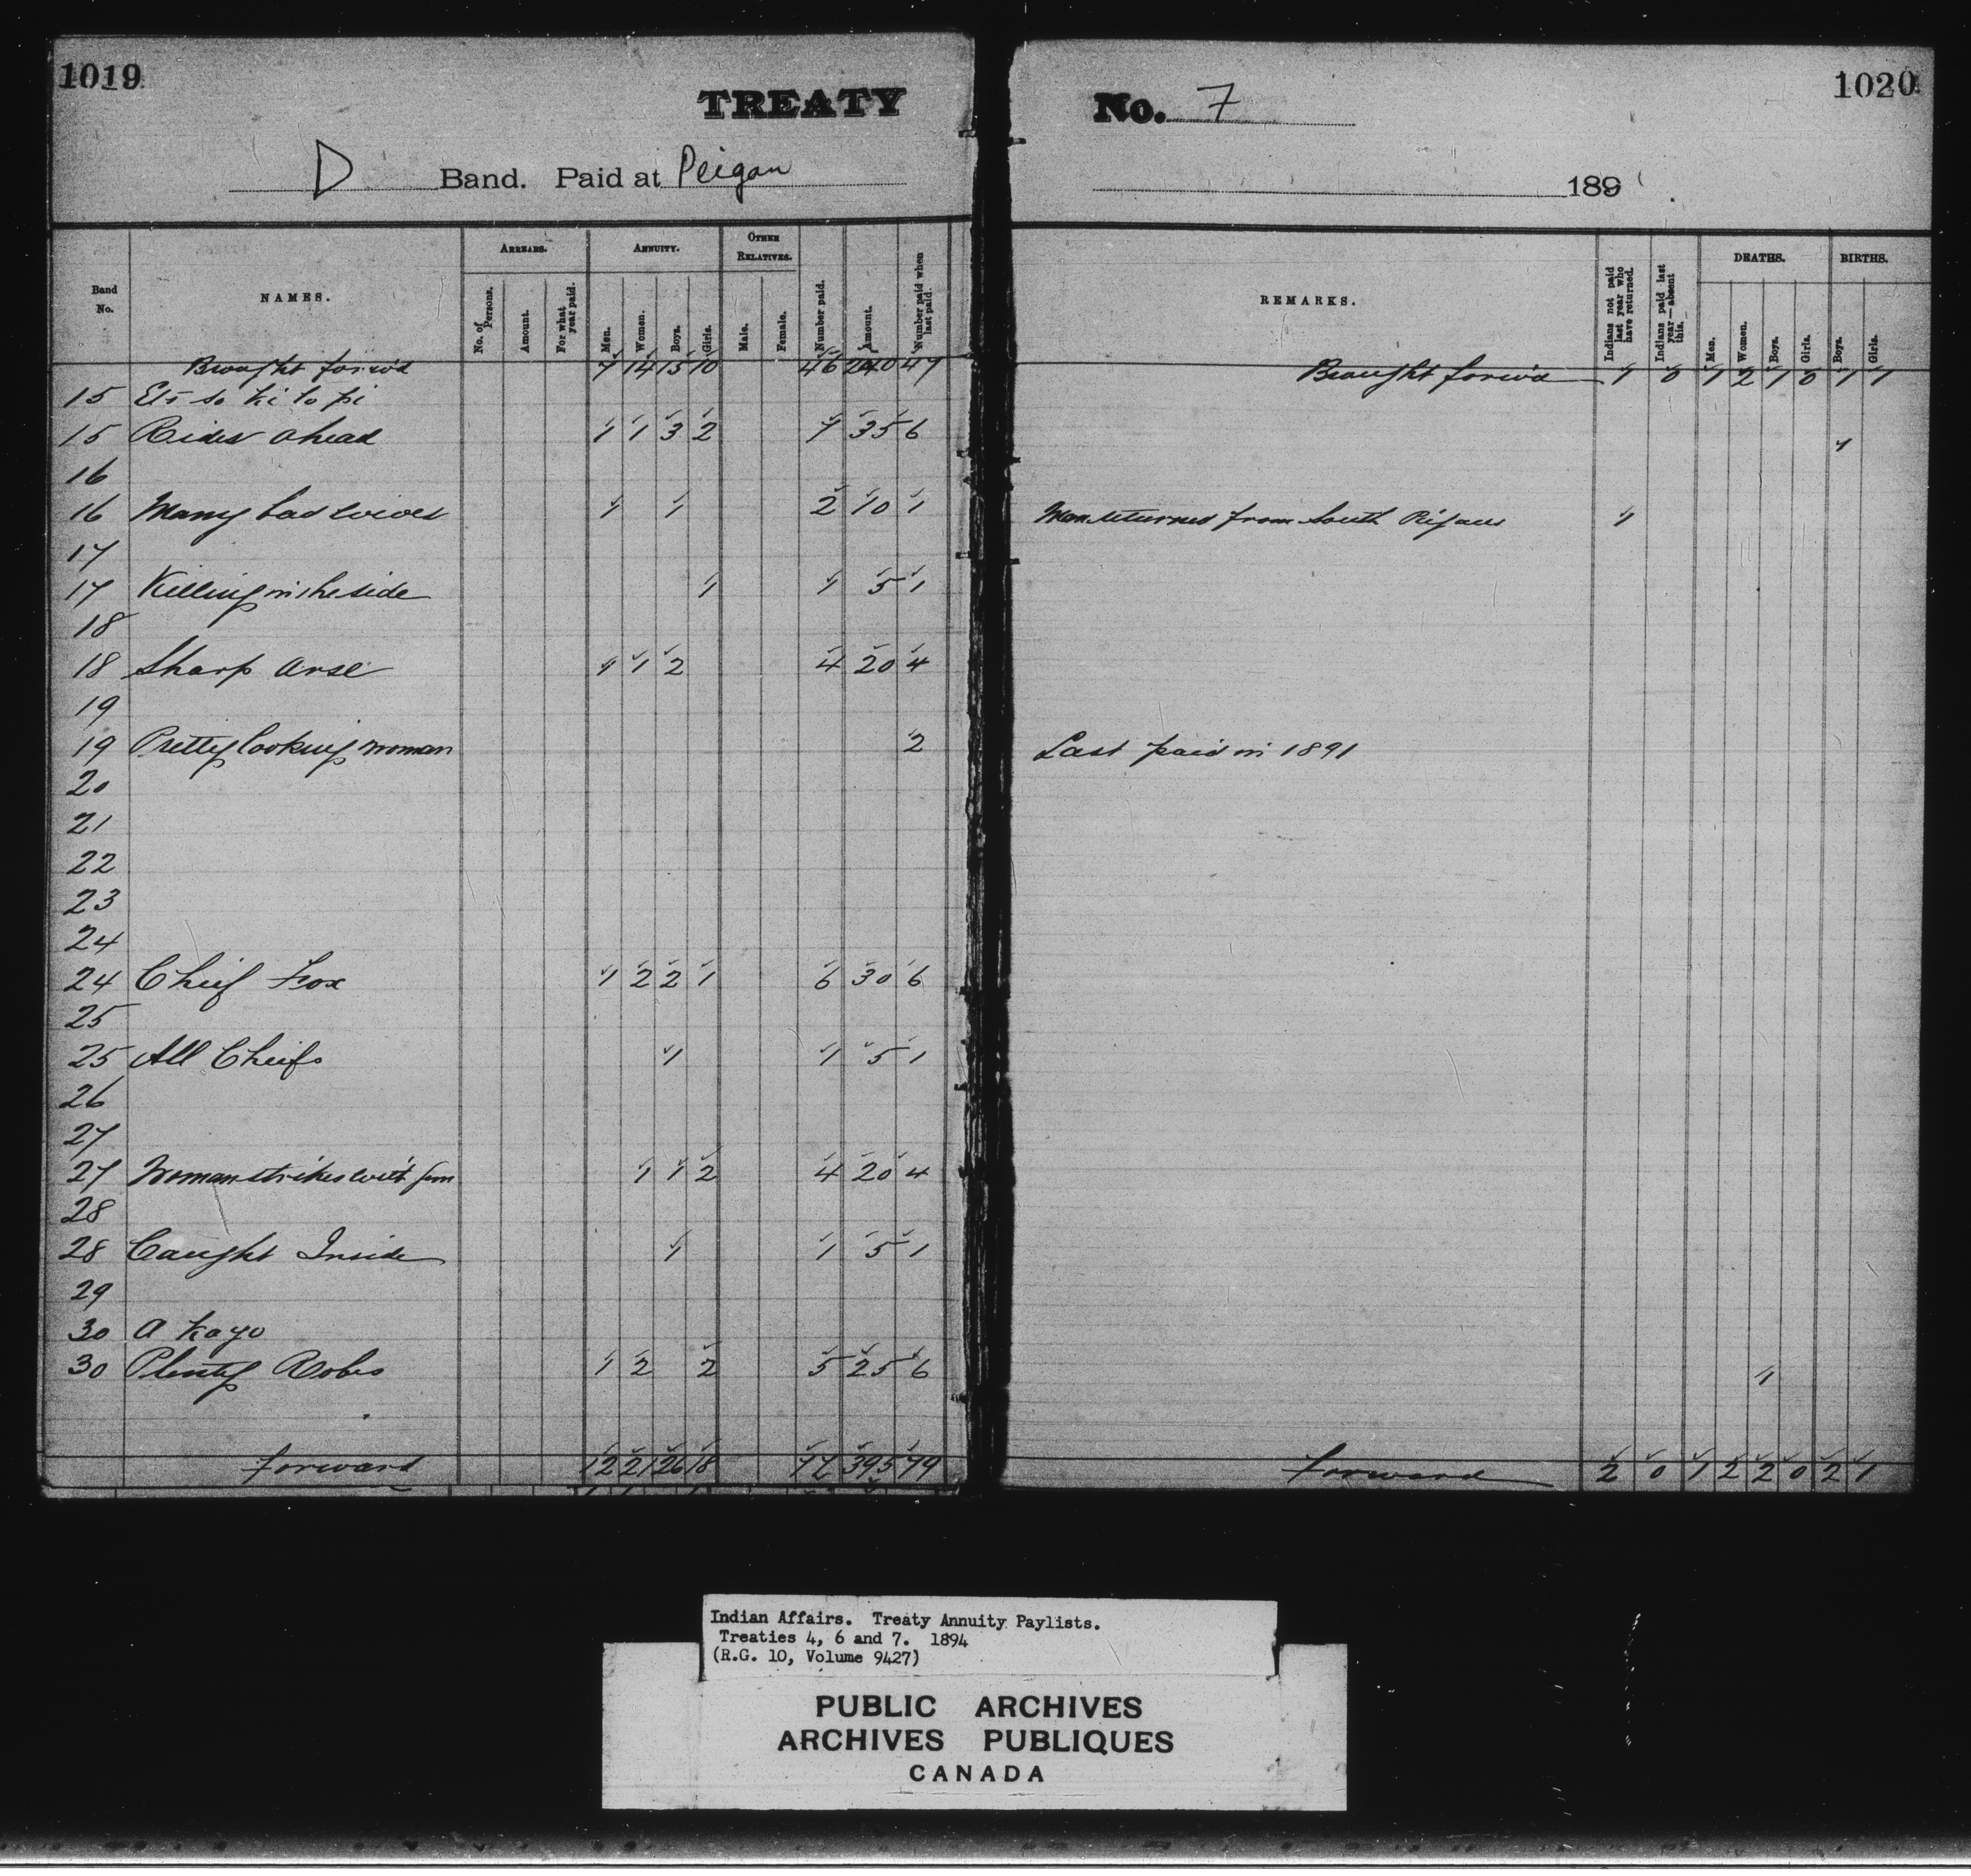 1019
TREATY
D Band. Paid at Peigan
Band No.
NAMES.
ARREARS.
No. of Persons.
Amount.
For what year paid.
ANNUITY.
Men.
Women.
Boys.
Girls.
OTHER RELATIVES.
Male.
Female.
Number paid.
Amount.
Number paid when last paid.
Brought forw'd 7 14 15 10 46 240 47
15
15 Rides ahead 1 1 3 2 7 35 6
16
16 Many bad wives 1 1 2 10 1
17
17 Killing in the side 1 1 5 1
18
18 Sharp Arse 1 1 2 4 20 4
19
19 Pretty looking woman 2
20
21
22
23
24
24 Chief Fox 1 2 2 1 6 30 6
25
25 All Cheifs 1 1 5 1
26
27
27 Woman strikes with gun 1 1 2 4 20 4
28
28 Caught Inside 1 1 5 1
29
30 A Kayo
30 Plenty Robes 1 2 2 5 25 6
forward 12 21 26 18 77 395 79
1020
No. 7
189
REMARKS.
Indians not paid last year who have returned.
Indians paid last year—absent this.
DEATHS.
Men.
Women.
Boys.
Girls.
BIRTHS.
Boys.
Girls.
Brought forw'd 1 0 1 2 1 0 1 1
1
Man returned from South Pigans 1
Last paid in 1891
1
forward 2 0 1 2 2 0 2 1
Indian Affairs. Treaty Annuity Paylists.
Treaties 4, 6 and 7. 1894
(R.G. 10, Volume 9427)
PUBLIC ARCHIVES
ARCHIVES PUBLIQUES
CANADA